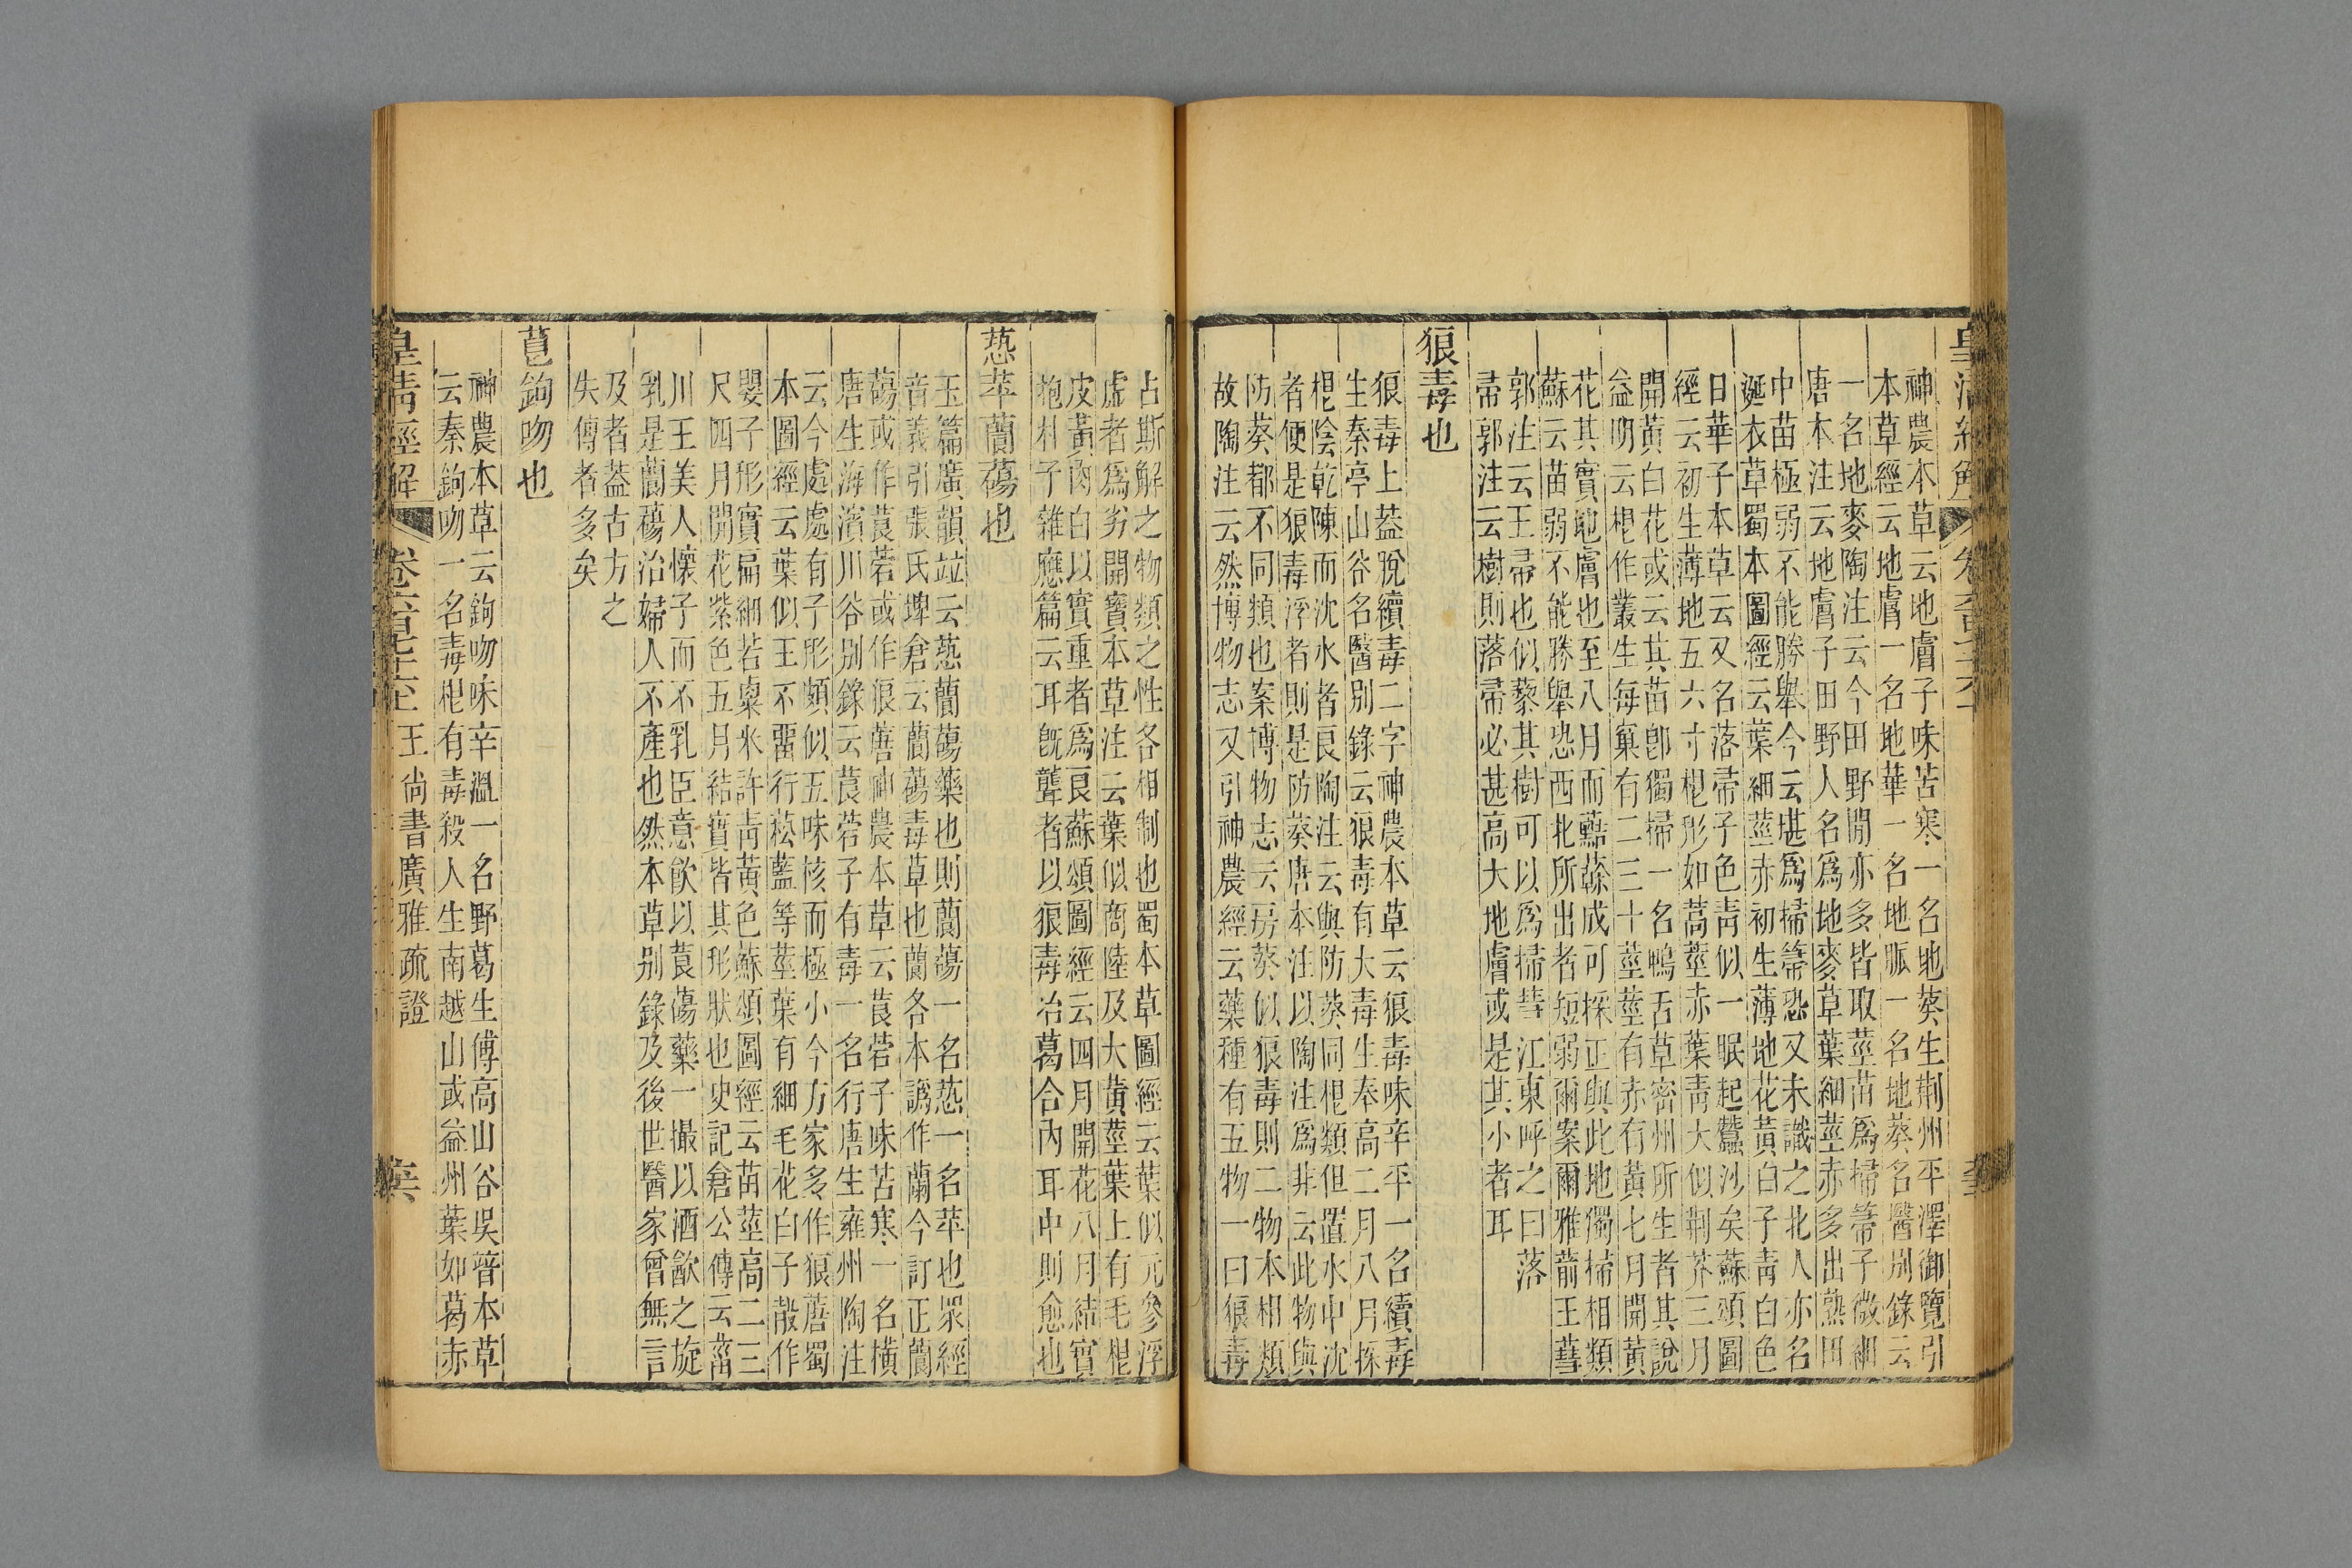 神農本草云地膚子味苦寒一名地葵生荆州平澤御覽引
本草經云地膚一名地華一名地脈一名地葵名醫別錄云
一名地麥陶注云今田野閒亦多皆取莖苗爲掃帚子微細
唐本注云地膚子田野人名爲地麥草葉細莖赤多出熟田
中苗極弱不能勝舉今云堪爲掃帚恐又未識之北人亦名
涎衣草蜀本圖經云葉細莖赤初生薄地花黃白子靑白色
日華子本草云又名落帚子色靑似一眠起蠶沙矣蘇頌圖
經云初生薄地五六寸根形如蒿莖赤葉靑大似荆芥三月
開黃白花或云其苗卽獨掃一名鴨舌草密州所生者其說
益明云根作叢生每窠有二三十莖莖有赤有黃七月開黃
花其實地膚也至八月而𪐴藤成可採正與此地獨掃相類
蘇云苗弱不能勝舉恐西北所出者短弱爾案爾雅葥王彗
郭注云王帚也似藜其樹可以爲掃彗江東呼之曰落
帚郭注云樹則落帚必甚高大地膚或是其小者耳
狼毒也
狼毒上葢脫續毒二字神農本草云狼毒味辛平一名續毒
生秦亭山谷名醫別錄云狼毒有大毒生奉高二月八月採
根陰乾陳而沈水者良陶注云與防葵同根類但置水中沈
者便是狼毒浮者則是防葵唐本注以陶注爲非云此物與
防葵都不同類也案博物志云房葵似狼毒則二物本相類
故陶注云然博物志又引神農經云藥種有五物一曰狼毒
占斯解之物類之性各相制也蜀本草圖經云葉似元參浮
虛者爲劣開寶本草注云葉似商陸及大黃莖葉上有毛根
皮黃肉白以實重者爲良蘇頌圖經云四月開花八月結實
抱朴子雜應篇云耳旣聾者以狼毒冶葛合內耳中則愈也
䓤苹蘭蕩也
玉篇廣韻竝云䓤蘭蕩藥也則蘭蕩一名䓤一名苹也眾經
音義引張氏埤倉云蘭蕩毒草也蘭各本譌作蘭今訂正蘭
蕩或作莨菪或作狼蓎神農本草云莨菪子味苦寒一名橫
唐生海濱川谷別錄云莨菪子有毒一名行唐生雍州陶注
云今處處有子形頗似五味核而極小今方家多作狼蓎蜀
本圖經云葉似王不留行菘藍等莖葉有細毛花白子殼作
罌子形實扁細若粟米許靑黃色蘇頌圖經云苗莖高二三
尺四月開花紫色五月結實皆其形狀也史記倉公傳云菑
川王美人懷子而不乳臣意飮以莨蕩藥一撮以酒飮之旋
乳是蘭蕩治婦人不產也然本草別錄及後世醫家曾無言
及者葢古方之
失傳者多矣
莨鉤吻也
神農本草云鉤吻味辛溫一名野葛生傅高山谷吳普本草
云秦鉤吻一名毒根有毒殺人生南越山或益州葉如葛赤
皇淸經解 卷六百七十六 王尙書廣雅疏證